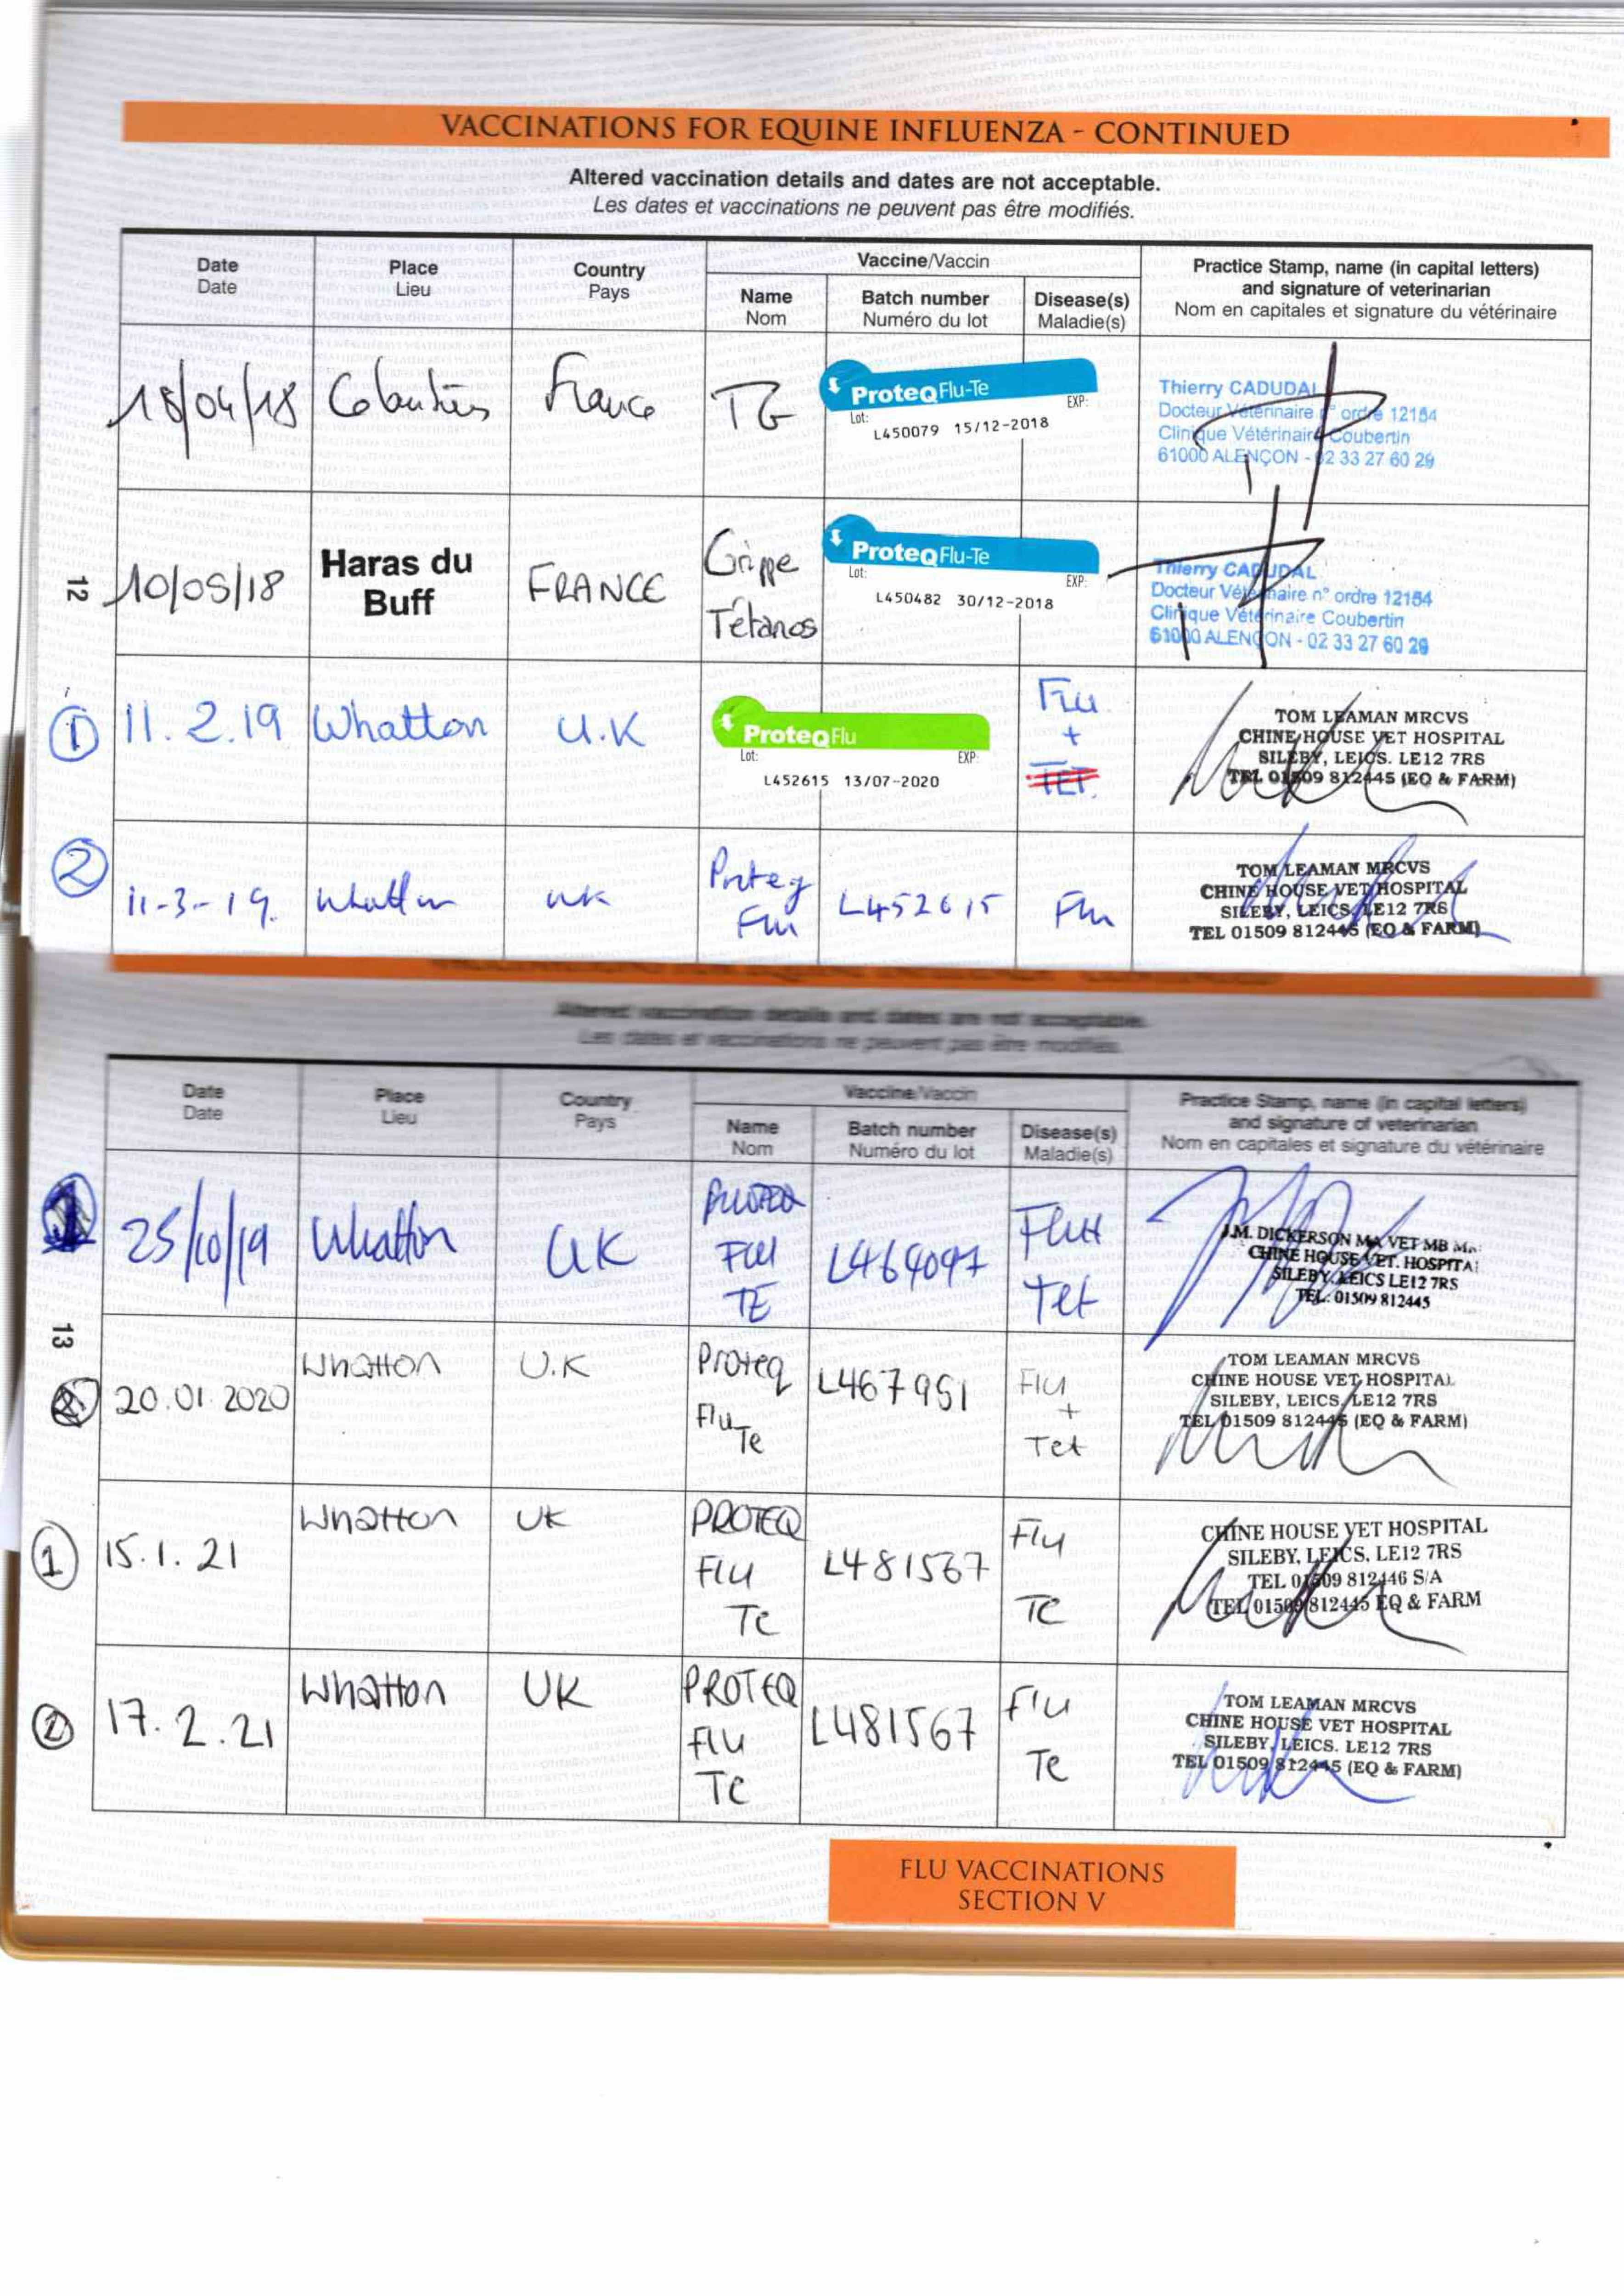 VACCINATIONS FOR EQUINE INFLUENZA - CONTINUED
Altered vaccination details and dates are not acceptable.
Les dates et vaccinations ne peuvent pas être modifiés.
Date
Date
Place
Lieu
Country
Pays
Vaccine/Vaccin
Name
Nom
Batch number
Numéro du lot
Disease(s)
Maladie(s)
Practice Stamp, name (in capital letters)
and signature of veterinarian
Nom en capitales et signature du vétérinaire
12
France
TG
ProteqFlu-Te
Lot:
EXP:
L450079 15/12-2018
Thierry CADUDAL
Docteur Vétérinaire n° ordre 12164
Clinique Vétérinaire Coubertin
61000 ALENÇON - 02 33 27 60 29
10/05/18
Haras du
Buff
FRANCE
Grippe
Tétanos
ProteqFlu-Te
Lot:
EXP:
L450482 30/12-2018
Thierry CADUDAL
Docteur Vétérinaire n° ordre 12164
Clinique Vétérinaire Coubertin
61000 ALENÇON - 02 33 27 60 29
1
11.2.19
Whatton
U.K
ProteqFlu
Lot:
EXP:
L452615 13/07-2020
Flu
+
TET.
TOM LEAMAN MRCVS
CHINE HOUSE VET HOSPITAL
SILEBY, LEICS. LE12 7RS
TEL 01509 812445 (EQ & FARM)
2
11-3-19.
Whatton
UK
Proteq
Flu
L452615
Flu
TOM LEAMAN MRCVS
CHINE HOUSE VET HOSPITAL
SILEBY, LEICS. LE12 7RS
TEL 01509 812445 (EQ & FARM)
Altered vaccination details and dates are not acceptable.
Les dates et vaccinations ne peuvent pas être modifiés.
Date
Date
Place
Lieu
Country
Pays
Vaccine/Vaccin
Name
Nom
Batch number
Numéro du lot
Disease(s)
Maladie(s)
Practice Stamp, name (in capital letters)
and signature of veterinarian
Nom en capitales et signature du vétérinaire
13
25/10/19
Whatton
UK
FLU
TE
L464097
Flu
Tet
J.M. DICKERSON MA VET MB
CHINE HOUSE VET. HOSPITA
SILEBY, LEICS LE12 7RS
TEL: 01509 812445
20.01.2020
Whatton
U.K
Proteq
Flu
Te
L467951
Flu
+
Tet
TOM LEAMAN MRCVS
CHINE HOUSE VET HOSPITAL
SILEBY, LEICS. LE12 7RS
TEL 01509 812445 (EQ & FARM)
1
15.1.21
Whatton
UK
PROTEQ
Flu
Te
L481567
Flu
Te
CHINE HOUSE VET HOSPITAL
SILEBY, LEICS, LE12 7RS
TEL 01509 812446 S/A
TEL 01509 812445 EQ & FARM
2
17.2.21
Whatton
UK
PROTEQ
Flu
Te
L481567
Flu
Te
TOM LEAMAN MRCVS
CHINE HOUSE VET HOSPITAL
SILEBY, LEICS. LE12 7RS
TEL 01509 812445 (EQ & FARM)
FLU VACCINATIONS
SECTION V